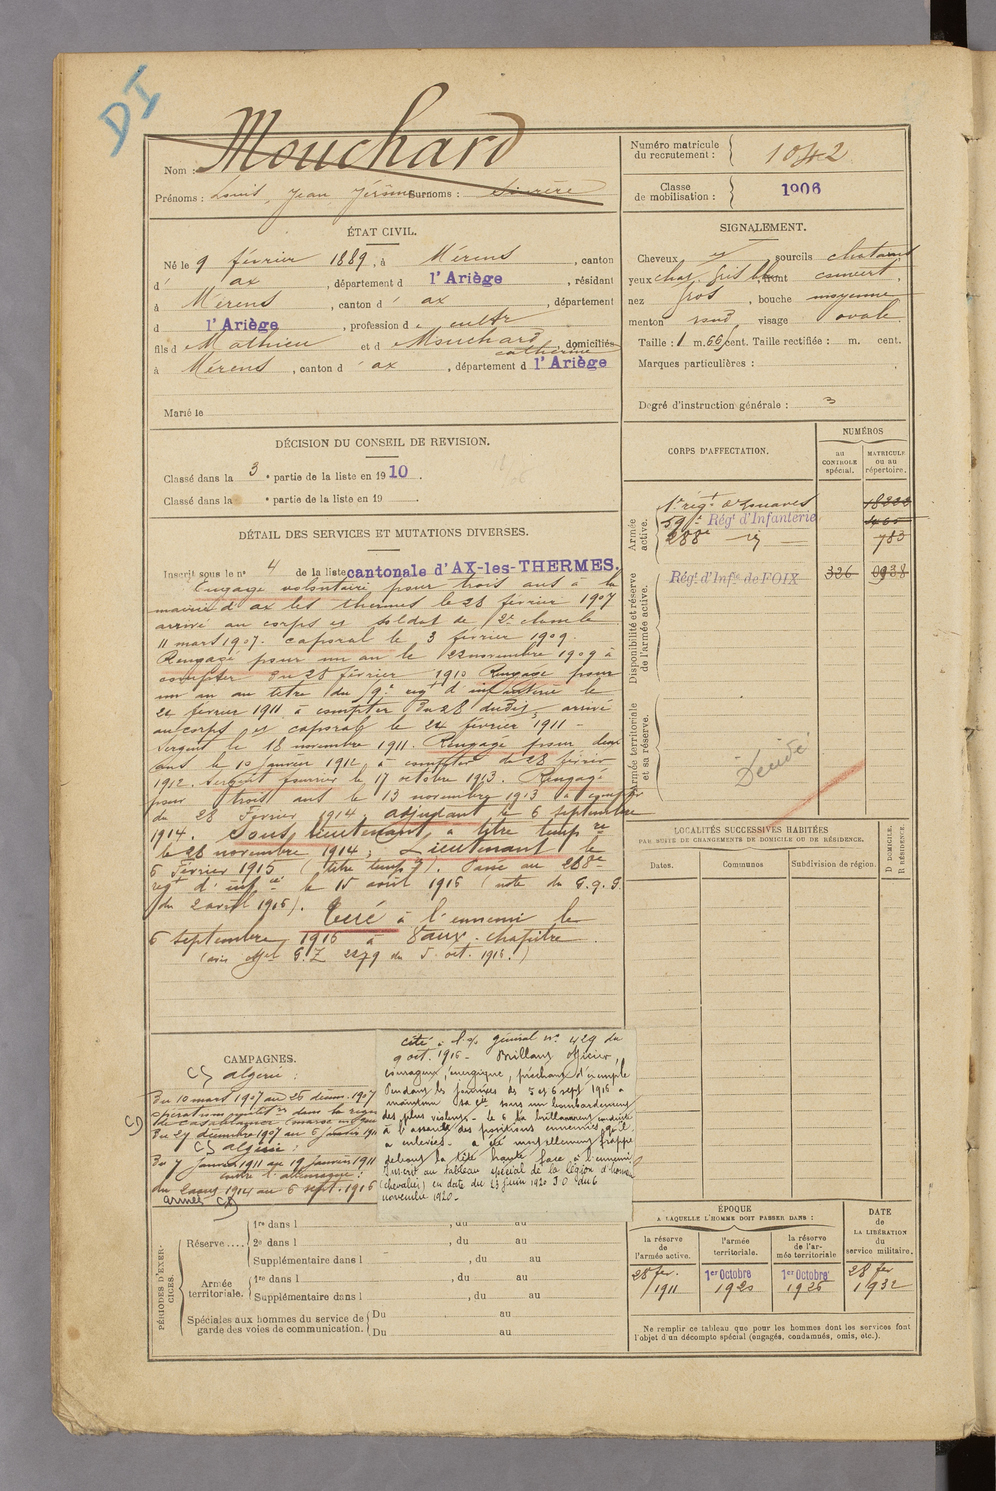 DI
Nom : Mouchard
Prénoms : Louis, Jean Jérôme Surnoms : Sincère
Numéro matricule du recrutement : 1042
Classe de mobilisation : 1906
ÉTAT CIVIL.
Né le 9 février 1889, à Mérens, canton
d' ax, département d l'Ariège, résidant
à Mérens, canton d' ax, département
d l'Ariège, profession d cultr
fils d Mathieu et d Mouchard catherine domiciliés
à Mérens, canton d' ax, département d l'Ariège
Marié le
SIGNALEMENT.
Cheveux et sourcils chatains
yeux chat. gris bl. front couvert
nez gros, bouche moyenne
menton rond, visage ovale.
Taille : 1 m. 66 cent. Taille rectifiée : m. cent.
Marques particulières :
Degré d'instruction générale : 3
DÉCISION DU CONSEIL DE REVISION.
Classé dans la 3e partie de la liste en 1910.
Classé dans la e partie de la liste en 19 .
DÉTAIL DES SERVICES ET MUTATIONS DIVERSES.
Inscrit sous le no 4 de la liste cantonale d'AX-les-THERMES.
Engagé volontaire pour trois ans à la
mairie d'ax les thermes le 28 février 1907
arrivé au corps et soldat de 2e classe le
11 mars 1907. caporal le 3 février 1909.
Rengagé pour un an le 22 novembre 1909 à
compter du 28 février 1910 Rengagé pour
un an au titre du 59e regt d'infanterie le
24 février 1911 à compter du 28 dudit, arrivé
au corps et caporal le 24 février 1911 -
Sergent le 18 novembre 1911. Rengagé pour deux
ans le 10 janvier 1912, à compter du 28 février
1912. Sergent fourrier le 17 octobre 1913. Rengagé
pour trois ans le 13 novembre 1913 à compter
du 28 Février 1914, adjudant le 6 septembre
1914. Sous lieutenant, à titre tempre
le 28 novembre 1914, Lieutenant le
6 Février 1915 (titre tempre). Passé au 288e
regt d'infie le 15 août 1916 (note du G.Q.G.
du 2 avril 1916).
Tué à l'ennemi le
6 septembre 1916 à Vaux-chapitre.
(avis offel G.Z 2279 du 5 oct. 1916.)
CORPS D'AFFECTATION.
NUMÉROS
au CONTROLE spécial.
MATRICULE ou au répertoire.
Armée active.
1er régt de Zouaves 18222
59e Régt d'Infanterie 460
288e - id - 783
Disponibilité et réserve de l'armée active.
Régt d'Infie de FOIX 326 0938
Armée territoriale et sa réserve.
Décédé
LOCALITÉS SUCCESSIVES HABITÉES
PAR SUITE DE CHANGEMENTS DE DOMICILE OU DE RÉSIDENCE.
Dates.
Communes
Subdivision de région.
D DOMICILE.
R RÉSIDENCE.
CAMPAGNES.
CS algerie :
Du 10 mars 1907 au 26 décem. 1907
opérations militres dans la région
de Casablanca (maroc
Du 27 décembre 1907 au 6 janvier 1911
CS algérie :
Du 7 janvier 1911 au 19 janvier 1911
contre l'allemagne :
du 2 août 1914 au 6 sept. 1916
armées CD
CD
cité à l'o/ général no 429 du
9 oct. 1916 - Brillant officier,
courageux, énergique, prêchant d'exemple
Pendant les journées des 5 et 6 sept 1916 a
maintenu sa cie sous un bombardement
des plus violents - le 6 l'a brillamment conduite
à l'assaut des positions ennemies qu'il
a enlevées - a été mortellement frappé
debout la tête haute face à l'ennemi
Inscrit au tableau spécial de la légion d'honneur
(chevalier) en date du 23 juin 1920 J.O du 6
novembre 1920 -
PÉRIODES D'EXERCICES.
Réserve....
1re dans l , du au
2e dans l , du au
Supplémentaire dans l , du au
Armée territoriale.
1re dans l , du au
Supplémentaire dans l , du au
Spéciales aux hommes du service de garde des voies de communication.
Du au
Du au
ÉPOQUE
A LAQUELLE L'HOMME DOIT PASSER DANS :
la réserve de l'armée active.
l'armée territoriale.
la réserve de l'armée territoriale
DATE de LA LIBÉRATION du service militaire.
28 fer. 1911
1er Octobre 1920
1er Octobre 1926
28 fer 1932
Ne remplir ce tableau que pour les hommes dont les services font
l'objet d'un décompte spécial (engagés, condamnés, omis, etc.).